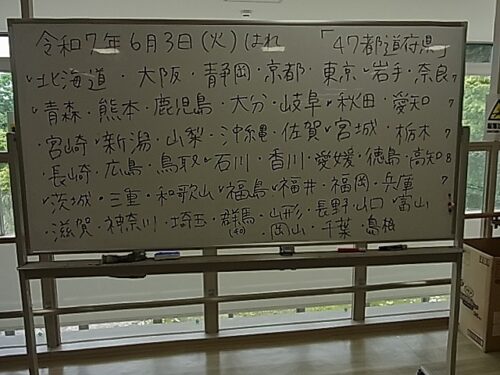 令和7年6月3日(火)はれ 「47都道府県」
✓北海道・大阪・静岡・京都・東京✓岩手・奈良 7
✓青森・熊本・鹿児島・大分・岐阜✓秋田・愛知 7
・宮崎✓新潟・山梨・沖縄・佐賀✓宮城・栃木 7
・長崎・広島・鳥取✓石川・香川・愛媛・徳島・高知 8
✓茨城・三重・和歌山✓福島✓福井・福岡・兵庫 7
・滋賀・神奈川・埼玉・群馬・山形・長野・山口・富山
岡山・千葉・島根